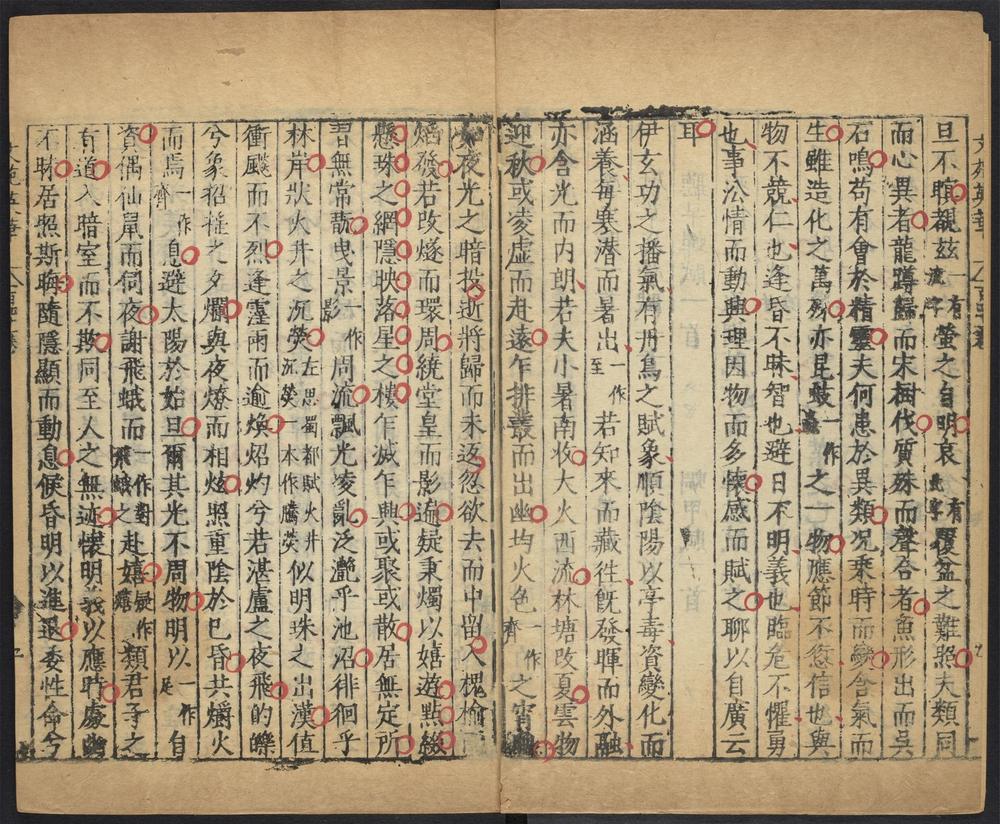 旦不瞑覩茲一有流字螢之自明哀有此字覆盆之難照夫類同
而心異者龍蹲歸而宋樹伐質殊而聲合者魚形出而吳
石鳴苟有會於精靈夫何患於異類况乘時而變含氣而
生雖造化之萬殊亦昆蚑一作蟲之一物應節不愆信也與
物不競仁也逢昏不昧智也避日不明義也臨危不懼勇
也事沿情而動興理因物而多懐感而賦之聊以自廣云
耳
伊玄功之播氣有丹鳥之賦象順陰陽以亭毒資變化而
涵養每寒潜而暑出一作至若知來而藏徃既發暉而外融
亦含光而内朗若夫小暑南收大火西流林塘改夏雲物
迎秋或凌虚而赴遠乍排叢而出幽均火色一作齊之宵
夜光之暗投逝將歸而未返忽欲去而中留入槐榆而
焰發若改燧而環周繞堂皇而影遍疑秉燭以嬉遊點綴
懸珠之網隱映落星之樓乍滅乍興或聚或散居無定所
習無常翫曳影一作景周流飄光凌亂泛灔乎池沼徘徊乎
林岸狀火井之沉熒左思蜀都賦火井沉熒一本作騰熒似明珠之出漢值
衝飈而不烈逢霪雨而逾煥炤灼兮若湛盧之夜飛的皪
兮象招摇之夕爛與夜燎而相炫照重陰於已昏共爝火
而焉一作齊息避太陽於始旦爾其光不周物明以一作足自
資偶仙鼠而伺夜謝飛蛾而一作對飛蛾之赴嬉疑作熺類君子之
有道入暗室而不欺同至人之無迹懐明義以應時處幽
不昧居照斯晦隨隱顯而動息候昏明以進退委性命兮